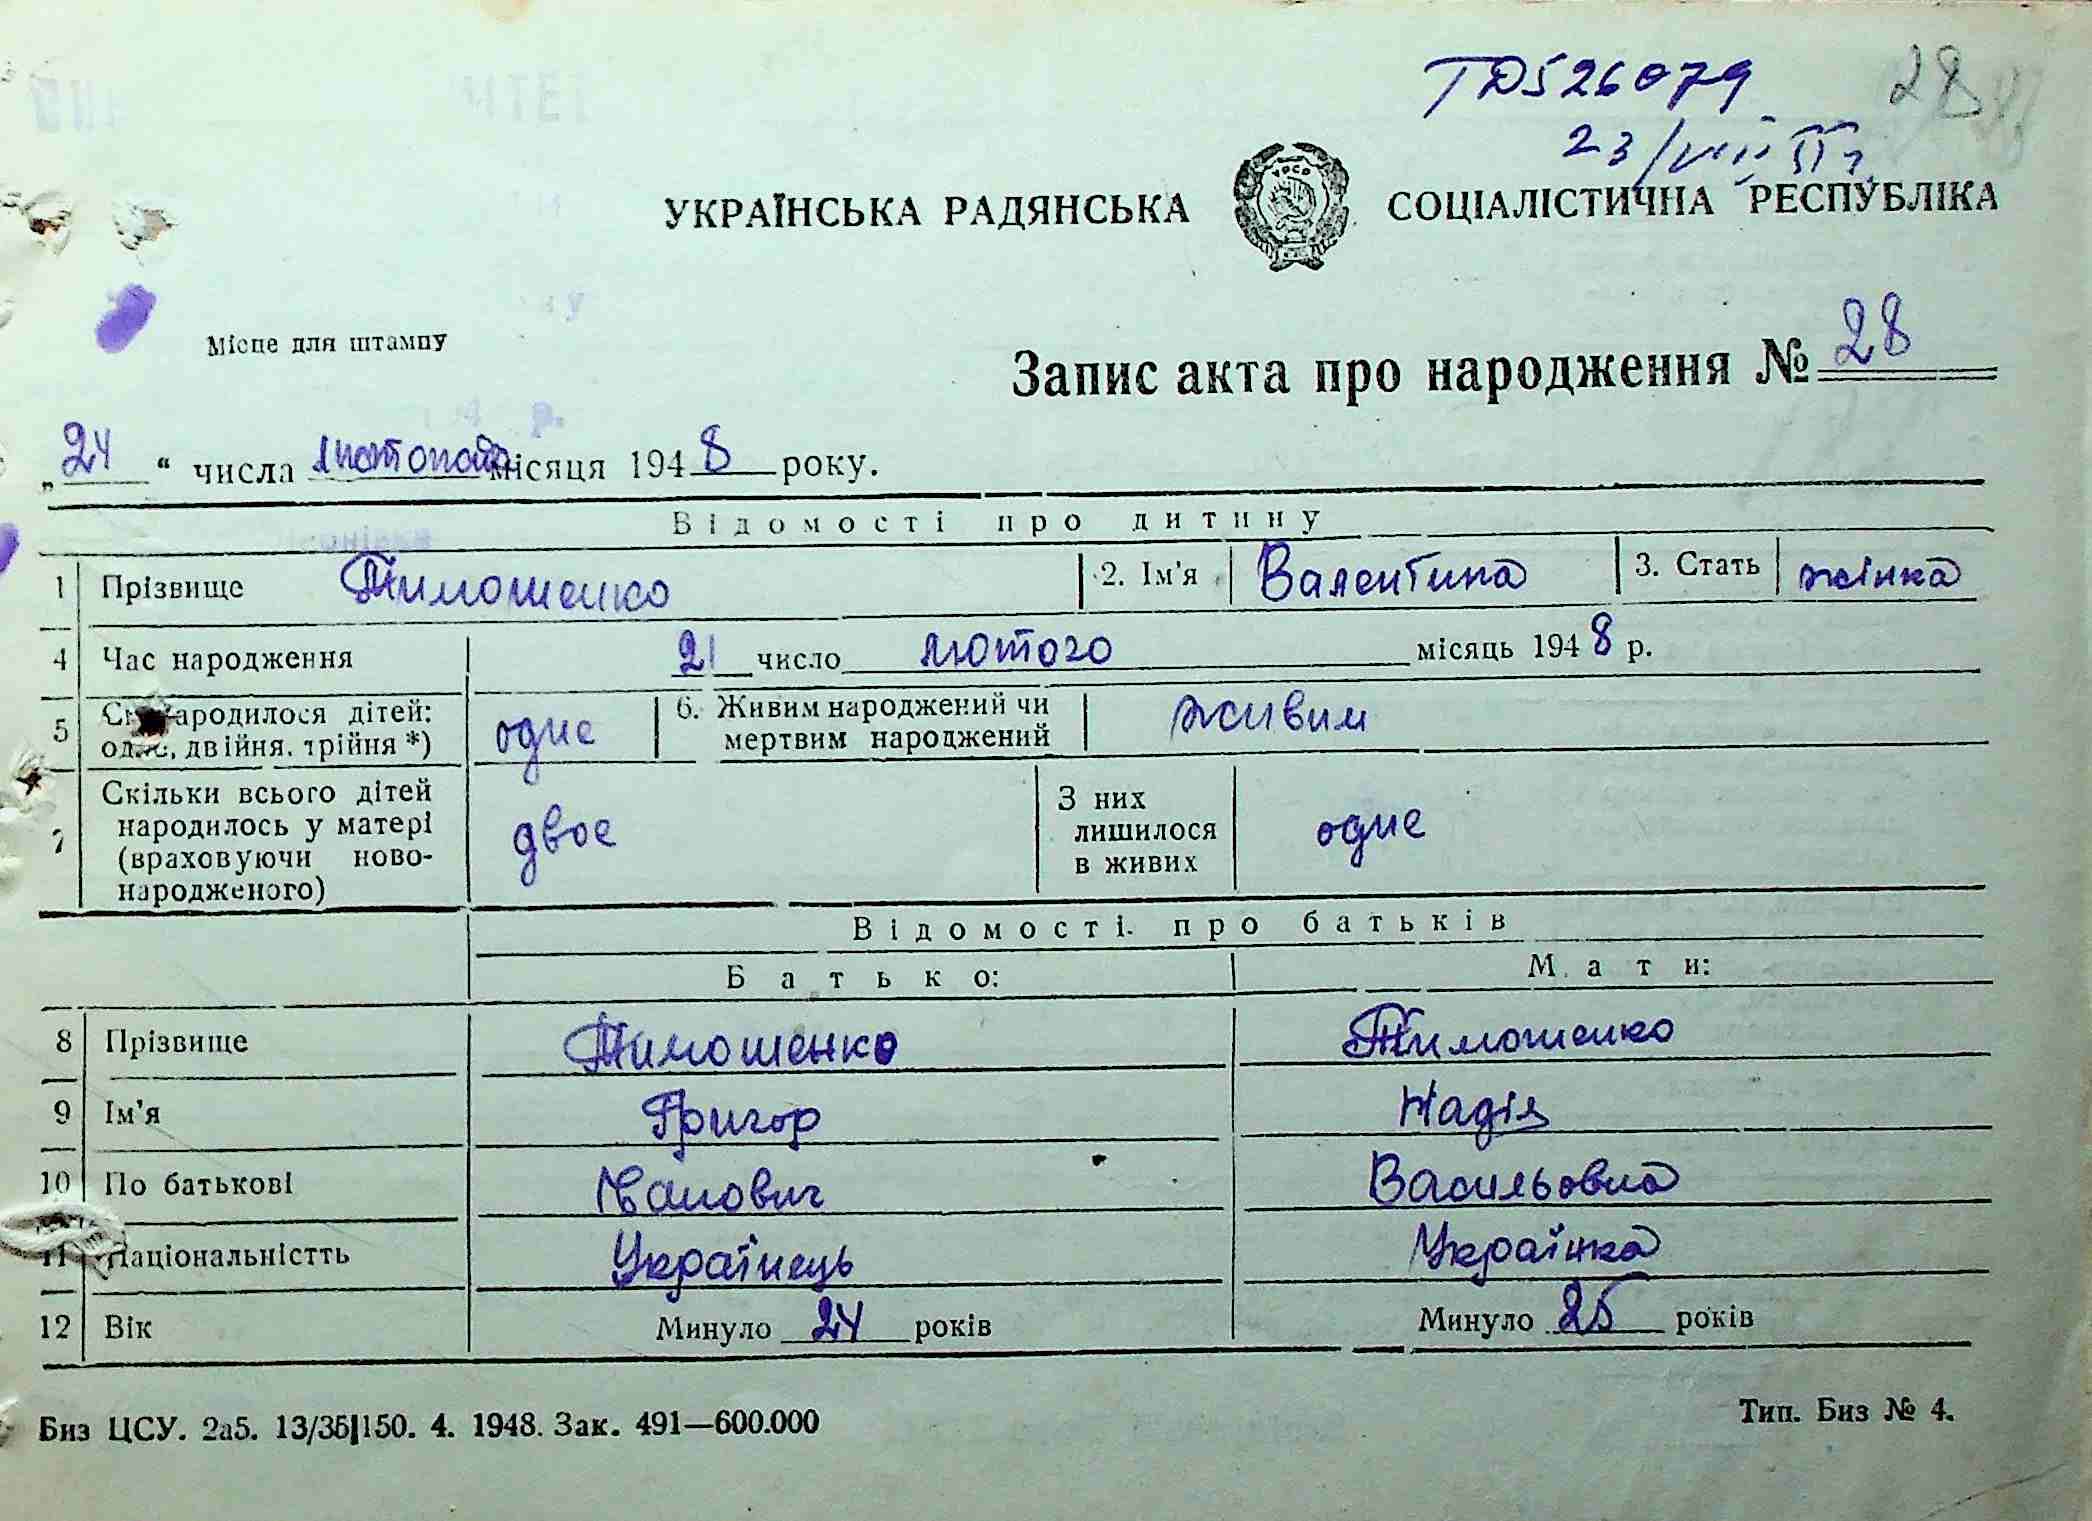 ТД526079 28
23/VIII 55 г.
УКРАЇНСЬКА РАДЯНСЬКА СОЦІАЛІСТИЧНА РЕСПУБЛІКА
Місце для штампу
Запис акта про народження № 28
„24“ числа листопада місяця 1948 року.
Відомості про дитину
1 Прізвище Тимошенко 2. Ім'я Валентина 3. Стать жінка
4 Час народження 21 число лютого місяць 1948 р.
5 народилося дітей: одне 6. Живим народжений чи живим
одне, двійня, трійня *) мертвим народжений
7 Скільки всього дітей двое З них одне
народилось у матері лишилося
(враховуючи ново- в живих
народженого)
Відомості про батьків
Батько: Мати:
8 Прізвище Тимошенко Тимошенко
9 Ім'я Григор Надія
10 По батькові Іванович Васильовна
11 Національністть Українець Українка
12 Вік Минуло 24 років Минуло 25 років
Биз ЦСУ. 2а5. 13/35|150. 4. 1948. Зак. 491—600.000 Тип. Биз № 4.